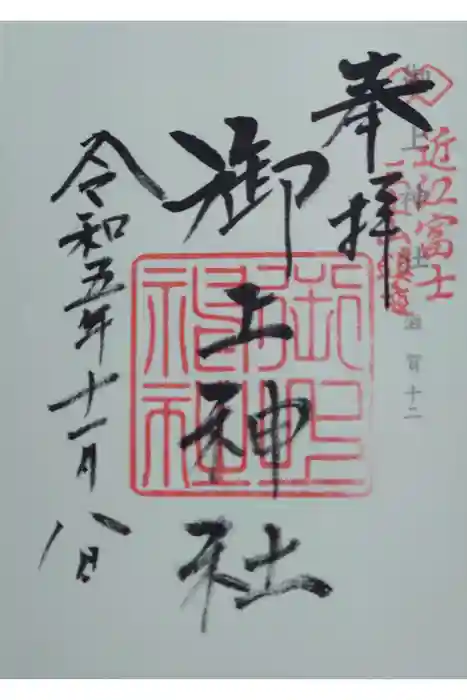 奉拝
近江富士
御上神社
御上神社
令和五年十一月八日